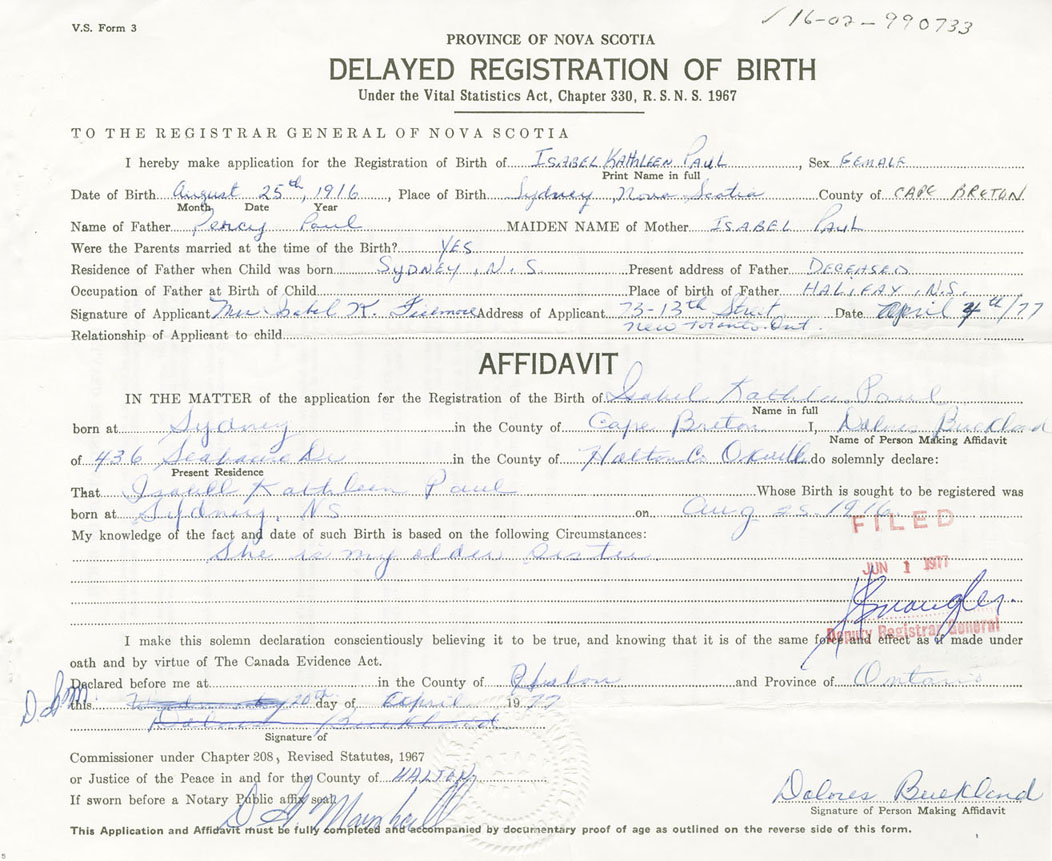 V.S. Form 3
16-02-990733
PROVINCE OF NOVA SCOTIA
DELAYED REGISTRATION OF BIRTH
Under the Vital Statistics Act, Chapter 330, R.S.N.S. 1967
TO THE REGISTRAR GENERAL OF NOVA SCOTIA
I hereby make application for the Registration of Birth of ISABEL KATHLEEN PAUL, Sex FEMALE
Print Name in full
Date of Birth August 25th, 1916, Place of Birth Sydney, Nova Scotia County of CAPE BRETON
Month Date Year
Name of Father Percy Paul MAIDEN NAME of Mother ISABEL PAUL
Were the Parents married at the time of the Birth? YES
Residence of Father when Child was born SYDNEY, N.S. Present address of Father DECEASED
Occupation of Father at Birth of Child Place of birth of Father HALIFAX, N.S.
Signature of Applicant Mrs Isabel K. Address of Applicant 73-13th Street Date April 4th/77
New Toronto. Ont.
Relationship of Applicant to child
AFFIDAVIT
IN THE MATTER of the application for the Registration of the Birth of Isabel Kathleen Paul
Name in full
born at Sydney in the County of Cape Breton I, Dolores Buckland
Name of Person Making Affidavit
of 436 Dr in the County of Halton Co do solemnly declare:
Present Residence
That Isabell Kathleen Paul Whose Birth is sought to be registered was
born at Sydney, NS on Aug 25. 1916
My knowledge of the fact and date of such Birth is based on the following Circumstances:
She is my older sister
FILED
JUN 1 1977
Deputy Registrar General
I make this solemn declaration conscientiously believing it to be true, and knowing that it is of the same force and effect as if made under
oath and by virtue of The Canada Evidence Act.
Declared before me at in the County of and Province of Ontario
this 20th day of April 1977
Dolores Buckland
Signature of
Commissioner under Chapter 208, Revised Statutes, 1967
or Justice of the Peace in and for the County of HALTON
If sworn before a Notary Public affix seal
Dolores Buckland
Signature of Person Making Affidavit
This Application and Affidavit must be fully completed and accompanied by documentary proof of age as outlined on the reverse side of this form.